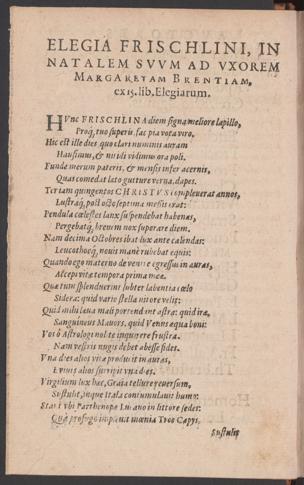 ELEGIA FRISCHLINI, IN
NATALEM SVVM AD VXOREM
MARGARETAM BRENTIAM,
ex 15. lib. Elegiarum.
HVnc FRISCHLINA diem signa meliore lapillo,
Proq́; tuo superis fac pia vota viro.
Hic est ille dies quo clari numinis auram
Hausimus, & nitidi vidimus ora poli.
Funde merum pateris, & mensis infer acernis,
Quas comedat lato gutture verna, dapes.
Ter iam quingentos CHRISTVS compleverat annos,
Lustraq́, post octo septima messis erat:
Pendula cœlestes lanx suspendebat habenas,
Pergebatq́, brevem nox superare diem.
Nam decima Octobres ibat lux ante calendas:
Leucothoeq́, novis manè rubebat equis:
Quando ego materno de ventre egressus in auras,
Accepi vitæ tempora prima meæ.
Quæ tum splenduerint sobter labentia cœlo
Sidera: quid vario stella nitore velit:
Quid mihi læva mali portendint astra: quid iræ,
Sanguineus Mavors, quid Venus æqua boni:
Vos ô Astrologi nolite inquirere frustra.
Nam vestris nugis debet abesse fides.
Vna dies alios vitæ producit in auras,
Et vnus alios surripit vna dies.
Virgilium lux hæc, Graia tellure reversum,
Sustulit, inque Itala contumulavit humo:
Stat vbi Parthenope Lucano in littore sedes:
Quà prospgit mœnia Troo Capys,
Sustulit